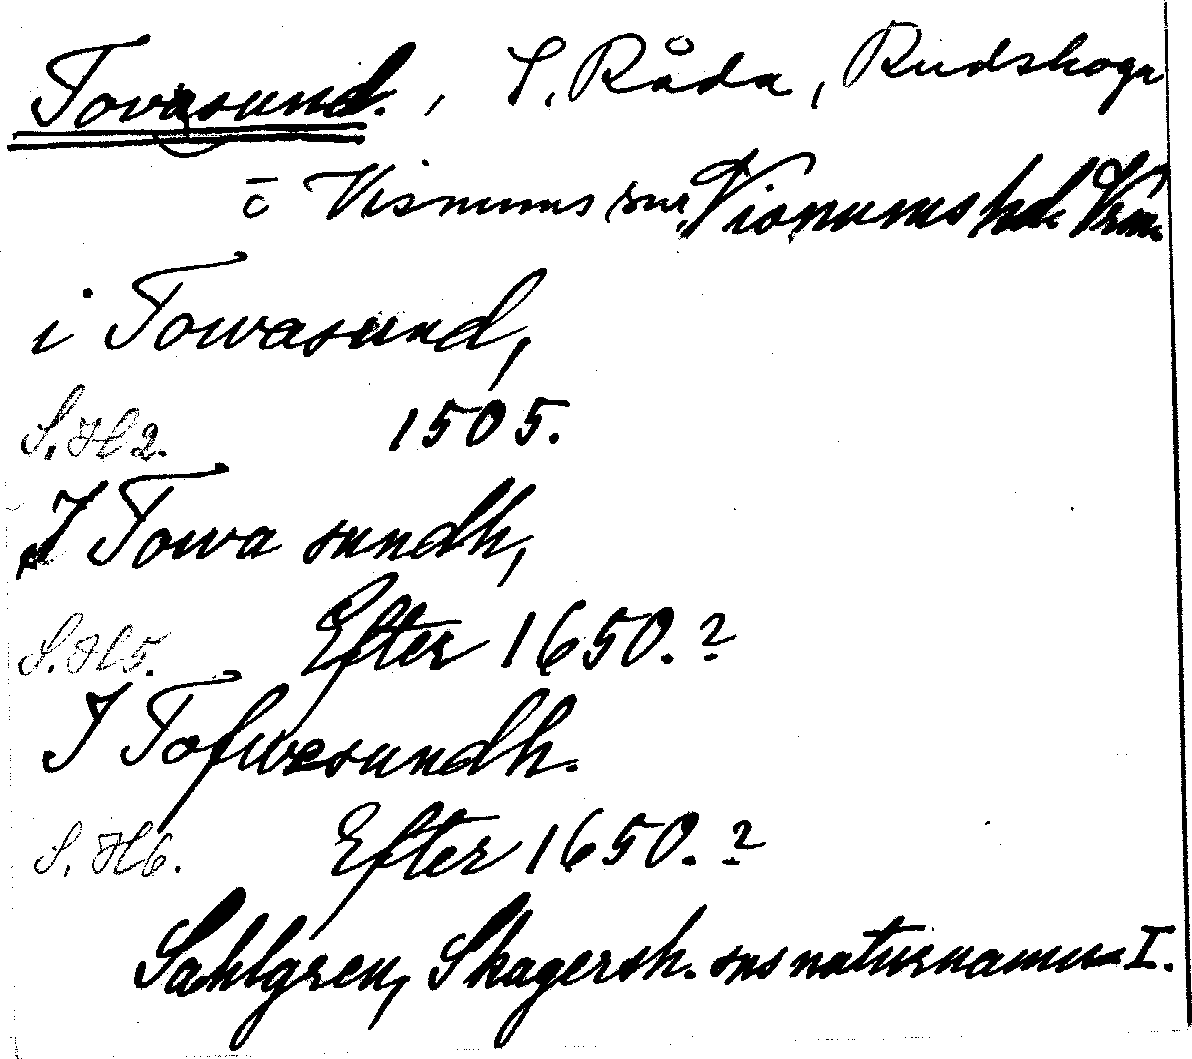 Tovasund. , S. Råda, Rudskoga
o Visnums snr Visnums hd. Vrm.
i Towasund,
S. H 2. 1505.
J Towa sundh,
S. H 5. Efter 1650.?
J Tofwesundh.
S. H 6. Efter 1650.?
Sahlgren, Skagersh. sns naturnamn I.